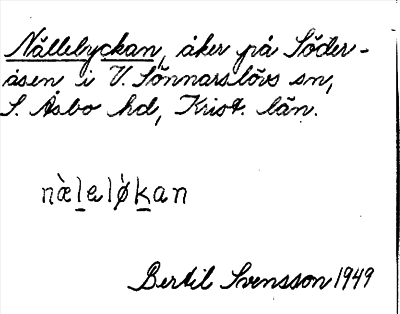 Nällelyckan, åker på Söder-
åsen i V. Sönnarslövs sn,
S. Åsbo hd, Krist. län.
nὰ̀lelø̀kan
Bertil Svensson 1949